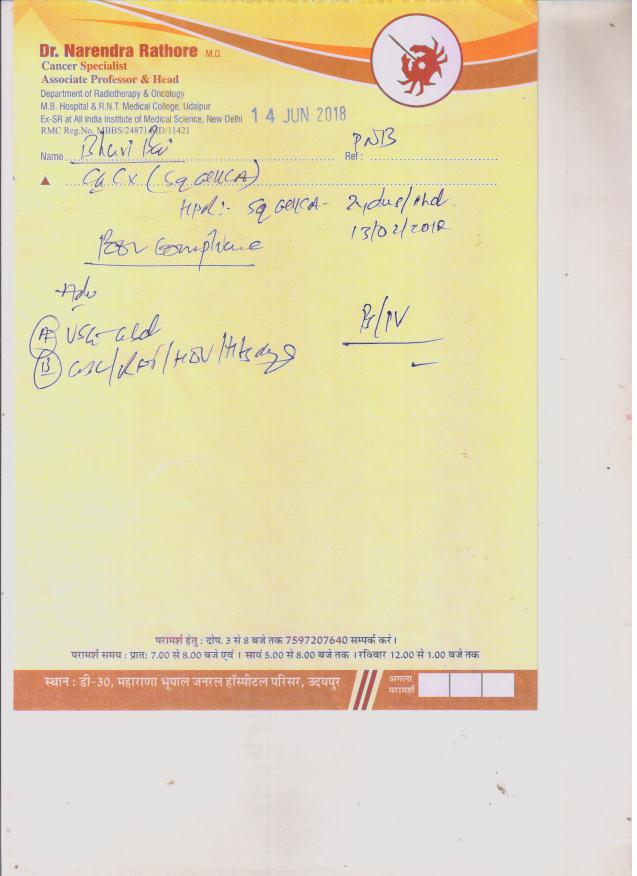 Dr. Narendra Rathore M.D.
Cancer Specialist
Associate Professor & Head
Department of Radiotherapy & Oncology
M.B. Hospital & R.N.T. Medical College, Udaipur
Ex-SR at All India Institute of Medical Science, New Delhi 14 JUN 2018
RMC Reg.No. MBBS/24871 MD/11421
Name Bhuri Bai Ref : PNB
Ca Cx (Sq Cell CA)
HPR:- Sq Cell CA- Zydus/Ahd
13/02/2018
Poor Compliance
Adv
Ps/PV
(A) USG-
(B) CBC/RFT/
परामर्श हेतु : दोप. 3 से 8 बजे तक 7597207640 सम्पर्क करे।
परामर्श समय : प्रातः 7.00 से 8.00 बजे एवं । सायं 5.00 से 8.00 बजे तक । रविवार 12.00 से 1.00 बजे तक
स्थान : डी-30, महाराणा भूपाल जनरल हॉस्पीटल परिसर, उदयपुर
अगला
परामर्श